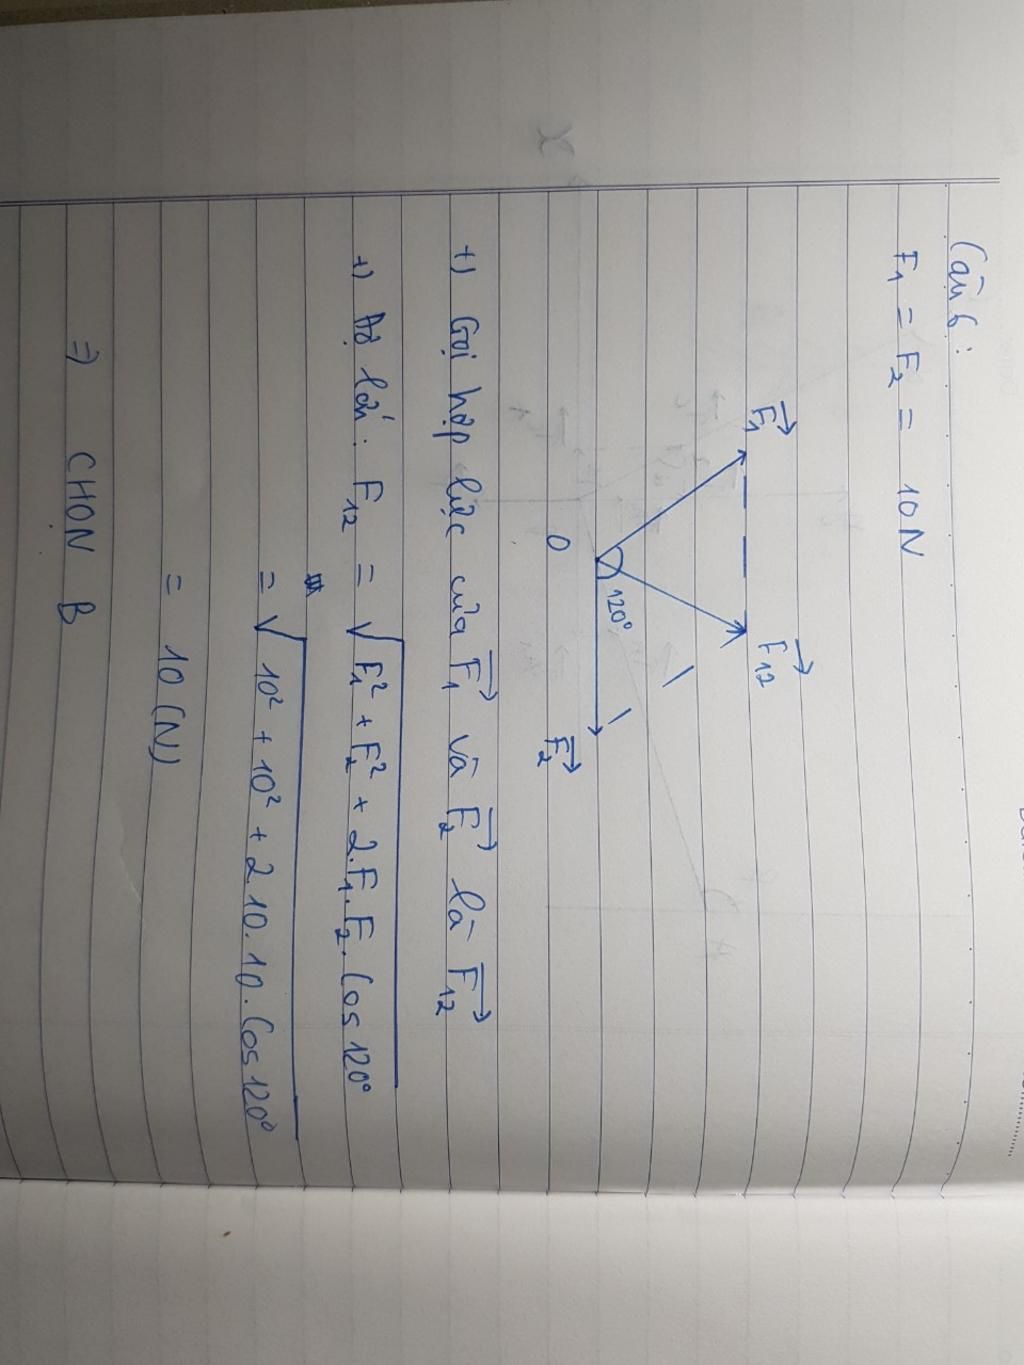 Câu 6:
F₁ = F₂ = 10 N
F₁ F₁₂
120°
O F₂
+) Gọi hợp lực của F₁ và F₂ là F₁₂
+) Độ lớn: F₁₂ = √F₁² + F₂² + 2.F₁.F₂.Cos120°
= √10² + 10² + 2.10.10.Cos120°
= 10 (N)
⇒ CHỌN B